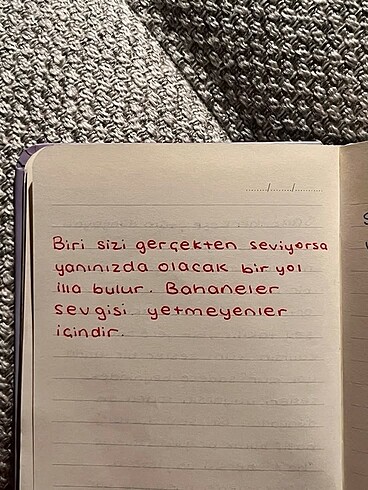 ......./......./.......
Biri sizi gerçekten seviyorsa
yanınızda olacak bir yol
illa bulur. Bahaneler
sevgisi yetmeyenler
içindir.